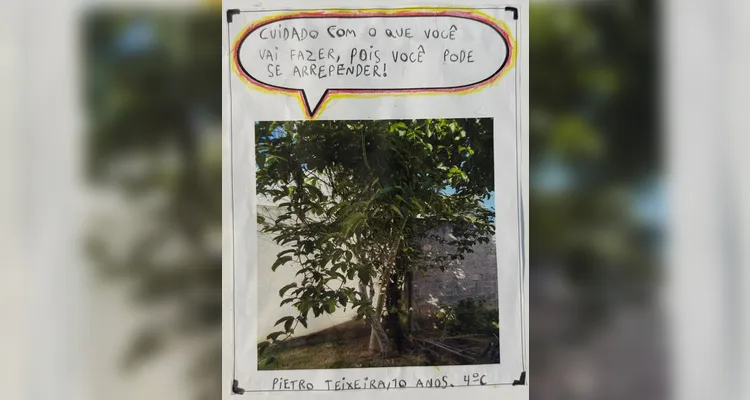 CUIDADO COM O QUE VOCÊ
VAI FAZER, POIS VOCÊ PODE
SE ARREPENDER!
PIETRO TEIXEIRA/10 ANOS. 4ºC